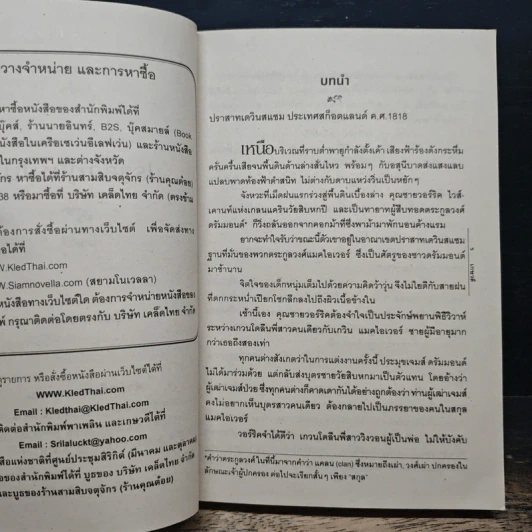 วางจำหน่าย และการหาซื้อ
หาซื้อหนังสือของสำนักพิมพ์ได้ที่
บุ๊คส์, ร้านนายอินทร์, B2S, บุ๊คสมายล์ (Book
นังสือในเครือเซเว่นอีเลฟเว่น) และร้านหนังสือ
ในกรุงเทพฯ และต่างจังหวัด
จักร หาซื้อได้ที่ร้านสามสิบจตุจักร (ร้านคุณต้อย)
38 หรือมาซื้อที่ บริษัท เคล็ดไทย จำกัด (ตรงข้าม
ต้องการสั่งซื้อผ่านทางเว็บไซต์ เพื่อจัดส่งทาง
อได้ที่
W.KledThai.com
W.Siamnovella.com (สยามโนเวลลา)
หนังสือทางเว็บไซต์ใด ต้องการจำหน่ายหนังสือของ
พ์ กรุณาติดต่อโดยตรงกับ บริษัท เคล็ดไทย จำกัด
ดูรายการ หรือสั่งซื้อหนังสือผ่านเว็บไซต์ได้ที่
WWW.KledThai.com
Email : Kledthai@KledThai.com
ติดต่อสำนักพิมพ์พาเพลิน และเกษวดีได้ที่
Email : Sriluckt@yahoo.com
สือแห่งชาติที่ศูนย์ประชุมสิริกิติ์ (มีนาคม และตุลาคม)
อของสำนักพิมพ์ได้ที่ บูธของ บริษัท เคล็ดไทย จำกัด
และบูธของร้านสามสิบจตุจักร (ร้านคุณต้อย)
บทนำ
ปราสาทเดวินสแชม ประเทศสก็อตแลนด์ ค.ศ.1818
เหนือบริเวณที่ราบต่ำพายุกำลังตั้งเค้า เสียงฟ้าร้องดังกระหึ่ม
ครั่นครื้นเสียจนพื้นดินด้านล่างสั่นไหว พร้อมๆ กับอสุนีบาตส่งแสงแลบ
แปลบพาดท้องฟ้าดำสนิท ไม่ต่างกับคาบแห่งวันเป็นหยักๆ
จังหวะที่เม็ดฝนแรกร่วงสู่พื้นดินเบื้องล่าง คุณชายวอร์ริค ไวส์-
เคานท์แห่งเกลนแครินวัยสิบหกปี และเป็นทายาทผู้สืบทอดตระกูลวงศ์
ดรัมมอนด์* ก็วิ่งถลันออกจากคอกม้าที่ซึ่งพาม้ามาพักนอนค้างแรม
ยากจะทำใจรับว่าขณะนี้ตัวเขาอยู่ในอาณาเขตปราสาทเดวินสแชม
ฐานที่มั่นของพวกตระกูลวงศ์แมคไอเวอร์ ซึ่งเป็นศัตรูของชาวดรัมมอนด์
มาช้านาน
จิตใจของเด็กหนุ่มเต็มไปด้วยความคิดว้าวุ่น จึงไม่ใยดีกับสายฝน
ที่ตกกระหน่ำเปียกโชกลึกลงไปถึงผิวเนื้อข้างใน
เช้านี้เอง คุณชายวอร์ริคต้องจำใจเป็นประจักษ์พยานพิธีวิวาห์
ระหว่างเกวนโดลีนพี่สาวคนเดียวกับเกวิน แมคไอเวอร์ ชายผู้มีอายุมาก
กว่าเธอถึงสองเท่า
ทุกคนต่างสังเกตว่าในการแต่งงานครั้งนี้ ประมุขเจมส์ ดรัมมอนด์
ไม่ได้มาร่วมด้วย แต่กลับส่งบุตรชายวัยสิบหกมาเป็นตัวแทน โดยอ้างว่า
ผู้เฒ่าเจมส์ป่วย ซึ่งทุกคนต่างก็คาดเดากันได้อย่างถูกต้องว่า ท่านผู้เฒ่าเจมส์
คงไม่อยากเห็นบุตรสาวคนเดียว ต้องกลายไปเป็นภรรยาของคนในสกุล
แมคไอเวอร์
วอร์ริคจำได้ดีว่า เกวนโดลีนพี่สาววิงวอนผู้เป็นพ่อ ไม่ให้บังคับ
*คำว่าตระกูลวงศ์ในที่นี้มาจากคำว่า แคลน (clan) ซึ่งหมายถึงเผ่า, วงศ์เผ่า ปกครองใน
ลักษณะเจ้าผู้ปกครอง ต่อไปจะเรียกสั้นๆ เพียง "สกุล"